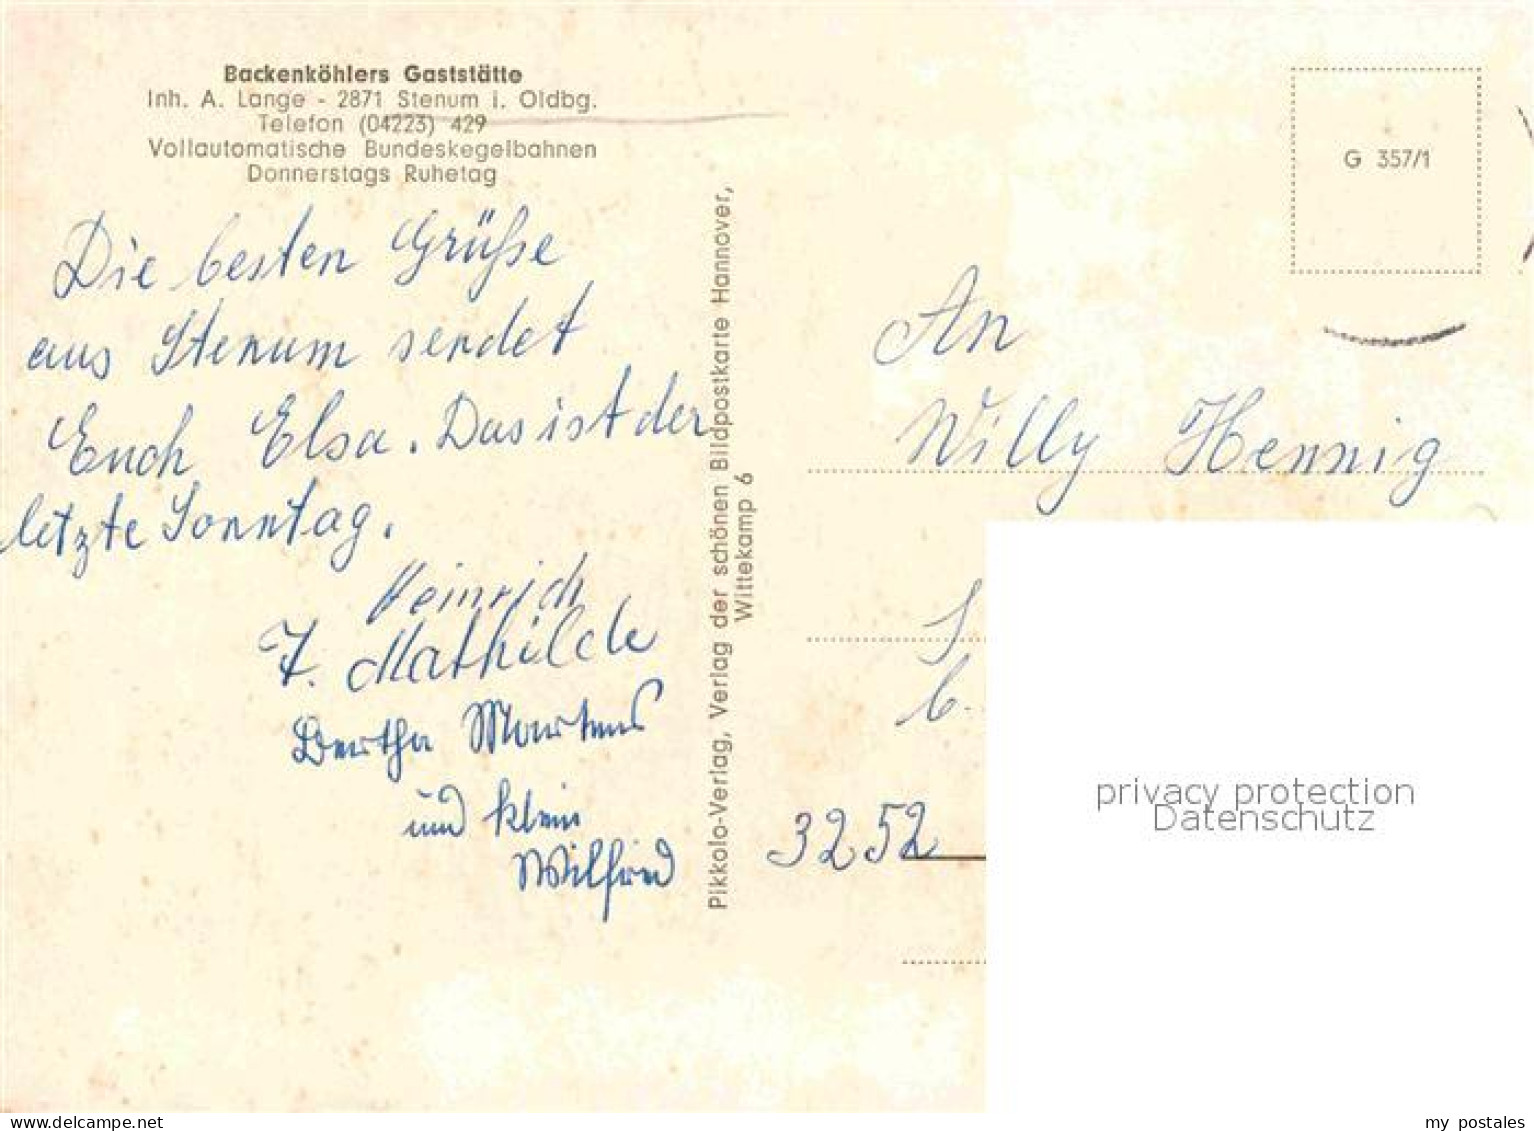 Backenköhlers Gaststätte
Inh. A. Lange - 2871 Stenum i. Oldbg.
Telefon (04223) 429
Vollautomatische Bundeskegelbahnen
Donnerstags Ruhetag
Die besten Grüße
aus Stenum sendet
Euch Elsa. Das ist der
letzte Sonntag.
Heinrich
T. Mathilde
Bertha Martens
und klein
Wilfried
Pikkolo-Verlag, Verlag der schönen Bildpostkarte Hannover,
Wittekamp 6
G 357/1
An
Willy Hennig
S
b.
3252
privacy protection
Datenschutz
my postales